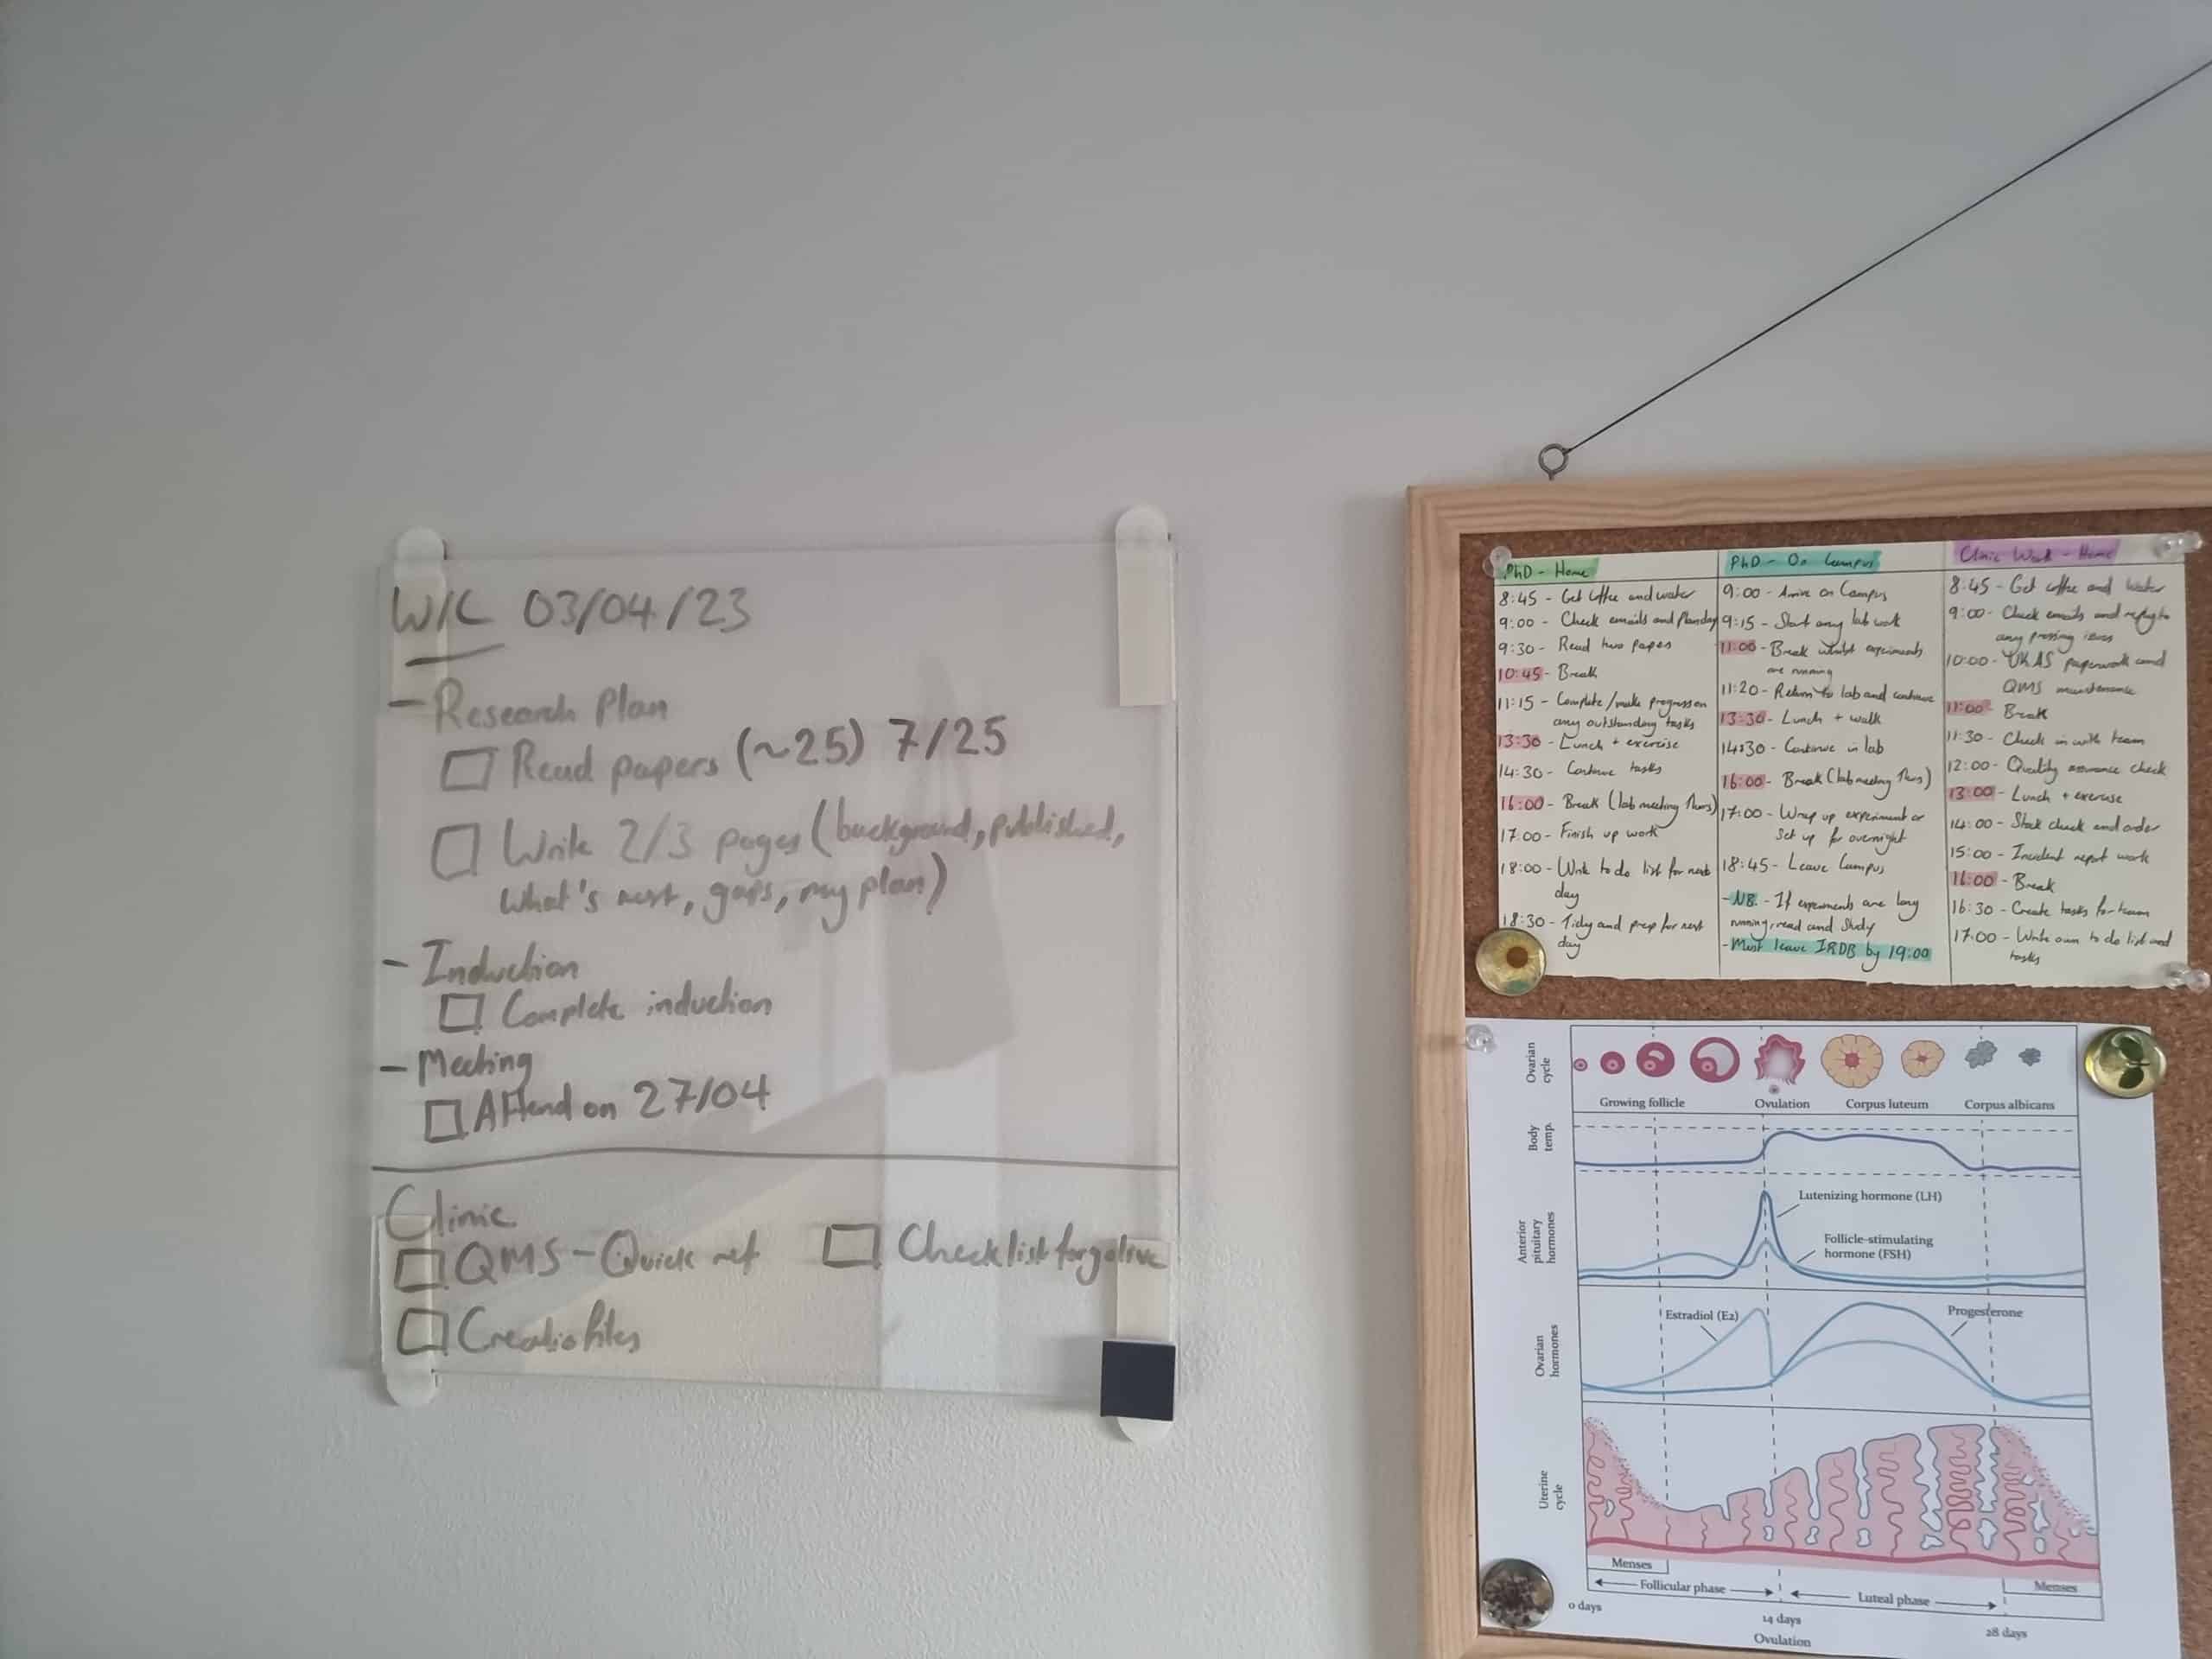 W/C 03/04/23
- Research Plan
Read papers (~25) 7/25
Write 2/3 pages (background, published,
What's next, gaps, my plan)
- Induction
Complete induction
- Meeting
Attend on 27/04
Clinic
QMS - Quick ref
Checklist for golive
Creatio files
PhD - Home
8:45 - Get coffee and water
9:00 - Check emails and Planday
9:30 - Read two papers
10:45 - Break
11:15 - Complete/make progress on
any outstanding tasks
13:30 - Lunch + exercise
14:30 - Continue tasks
16:00 - Break (lab meeting Thurs)
17:00 - Finish up work
18:00 - Write to do list for next
day
18:30 - Tidy and prep for next
day
PhD - On Campus
9:00 - Arrive on Campus
9:15 - Start any lab work
11:00 - Break whilst experiments
are running
11:20 - Return to lab and continue
13:30 - Lunch + walk
14:30 - Continue in lab
16:00 - Break (lab meeting Thurs)
17:00 - Wrap up experiment or
set up for overnight
18:45 - Leave Campus
- NB. - If experiments are long
running, read and study
- Must leave IRDB by 19:00
Clinic Work - Home
8:45 - Get coffee and water
9:00 - Check emails and reply to
any pressing issues
10:00 - UKAS paperwork and
QMS maintenance
11:00 - Break
11:30 - Check in with team
12:00 - Quality assurance check
13:00 - Lunch + exercise
14:00 - Stock check and order
15:00 - Incident report work
16:00 - Break
16:30 - Create tasks for team
17:00 - Write own to do list and
tasks
Ovarian
cycle
Growing follicle
Ovulation
Corpus luteum
Corpus albicans
Body
temp.
Anterior
pituitary
hormones
Lutenizing hormone (LH)
Follicle-stimulating
hormone (FSH)
Ovarian
hormones
Estradiol (E2)
Progesterone
Uterine
cycle
Menses
Menses
Follicular phase
Luteal phase
0 days
14 days
28 days
Ovulation